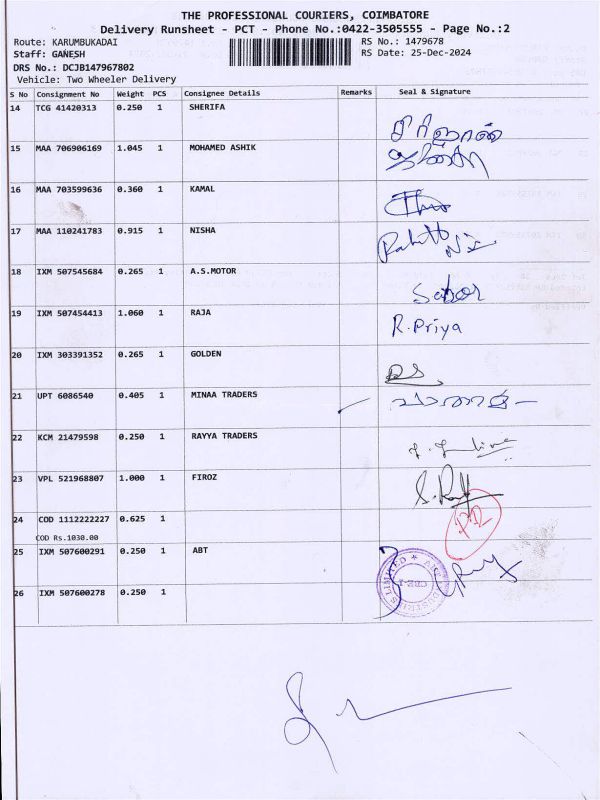 THE PROFESSIONAL COURIERS, COIMBATORE
Delivery Runsheet - PCT - Phone No.:0422-3505555 - Page No.:2
Route: KARUMBUKADAI
RS No.: 1479678
Staff: GANESH
RS Date: 25-Dec-2024
DRS No.: DCJB147967802
Vehicle: Two Wheeler Delivery
S No Consignment No Weight PCS Consignee Details Remarks Seal & Signature
14 TCG 41420313 0.250 1 SHERIFA
15 MAA 706906169 1.045 1 MOHAMED ASHIK
16 MAA 703599636 0.360 1 KAMAL
17 MAA 110241783 0.915 1 NISHA
18 IXM 507545684 0.265 1 A.S.MOTOR
19 IXM 507454413 1.060 1 RAJA R.Priya
20 IXM 303391352 0.265 1 GOLDEN
21 UPT 6086540 0.405 1 MINAA TRADERS
22 KCM 21479598 0.250 1 RAYYA TRADERS
23 VPL 521968807 1.000 1 FIROZ
24 COD 1112222227 0.625 1
COD Rs.1030.00
25 IXM 507600291 0.250 1 ABT
26 IXM 507600278 0.250 1